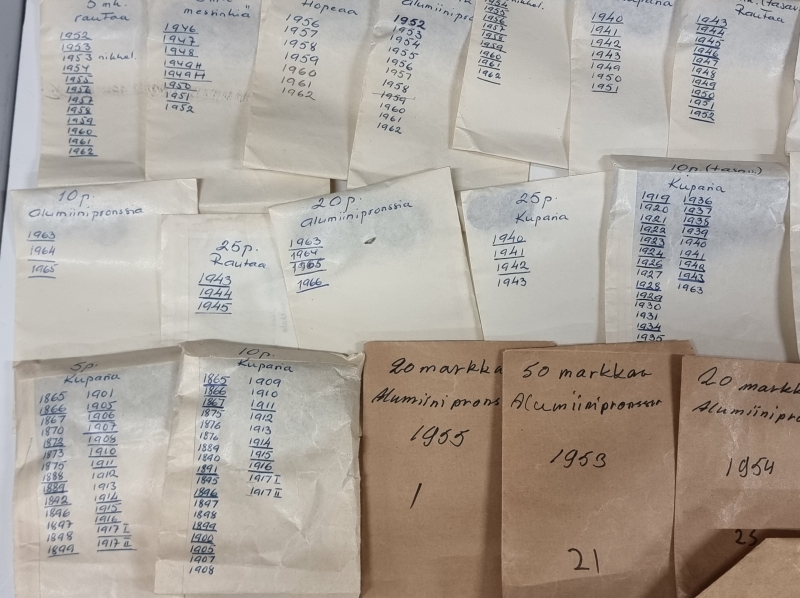 5 mk.
rautaa
1952
1953
1953 nikkel.
1954
1955
1956
1957
1958
1959
1960
1961
1962
messinkiä
1946
1947
1948
1949H
1949H
1950
1951
1952
Hopeaa
1956
1957
1958
1959
1960
1961
1962
alumiinipronssia
1952
1953
1954
1955
1956
1957
1958
1959
1960
1961
1962
nikkel.
1955
1956
1957
1958
1959
1960
1961
1962
Kuparia
1940
1941
1942
1943
1949
1950
1951
Rautaa
1943
1944
1945
1946
1947
1948
1949
1950
1951
1952
10 p.
alumiinipronssia
1963
1964
1965
25 p.
Rautaa
1943
1944
1945
20 p.
alumiinipronssia
1963
1964
1965
1966
25 p.
Kuparia
1940
1941
1942
1943
10 p. (tasa.)
Kuparia
1919
1920
1921
1922
1923
1924
1926
1927
1928
1929
1930
1931
1934
1935
1936
1937
1938
1939
1940
1941
1942
1943
1963
5 p.
Kuparia
1865
1866
1867
1870
1872
1873
1875
1888
1889
1892
1896
1897
1898
1899
1901
1905
1906
1907
1908
1910
1911
1912
1913
1914
1915
1916
1917 I
1917 II
10 p.
Kuparia
1865
1866
1867
1875
1876
1876
1889
1890
1891
1895
1896
1897
1898
1899
1900
1905
1907
1908
1909
1910
1911
1912
1913
1914
1915
1916
1917 I
1917 II
20 markka
Alumiinipron
1955
1
50 markkaa
Alumiinipronssia
1953
21
20 markk
Alumiinipro
1954
25